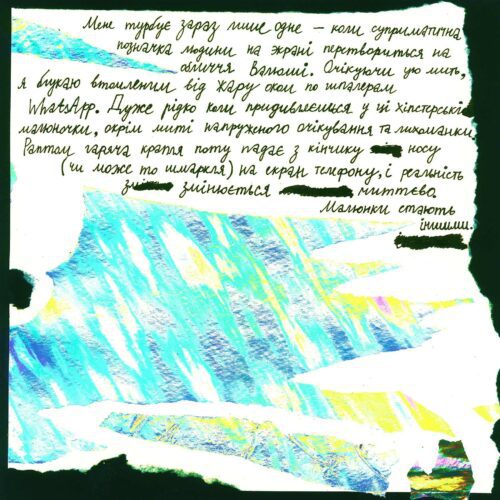 Мене турбує зараз лише одне – коли суприматична
позначка людини на экрані перетвориться на
обличчя Валюші. Очікуючи цю мить,
я блукаю втомленим від жару оком по шпалерам
WhatsApp. Дуже рідко коли придивляешся у ці хіпстерські
малюночки, окрім миті напруженого очікування та лихоманки.
Раптом гаряча крапля поту падає з кінчику носу
(чи може то шмаркля) на екран телефону, і реальність
змінюється миттєво.
Малюнки стають
іншими.